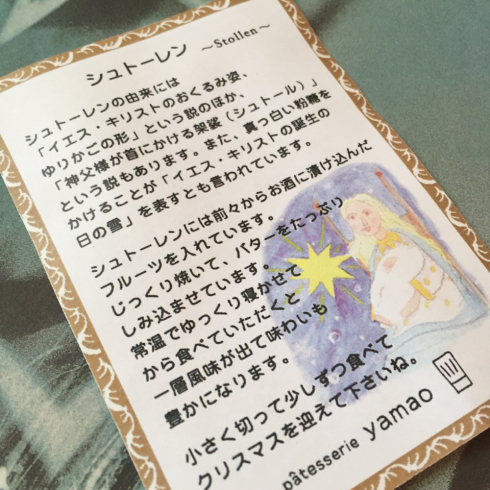 シュトーレン ～Stollen～
シュトーレンの由来には
「イエス・キリストのおくるみ姿、
ゆりかごの形」という説のほか、
「神父様が首にかける袈裟（シュトール）」
という説もあります。また、真っ白い粉糖を
かけることが「イエス・キリストの誕生の
日の雪」を表すとも言われています。
シュトーレンには前々からお酒に漬け込んだ
フルーツを入れています。
じっくり焼いて、バターをたっぷり
しみ込ませています。
常温でゆっくり寝かせて
から食べていただくと
一層風味が出て味わいも
豊かになります。
小さく切って少しずつ食べて
クリスマスを迎えて下さいね。
pâtesserie yamao